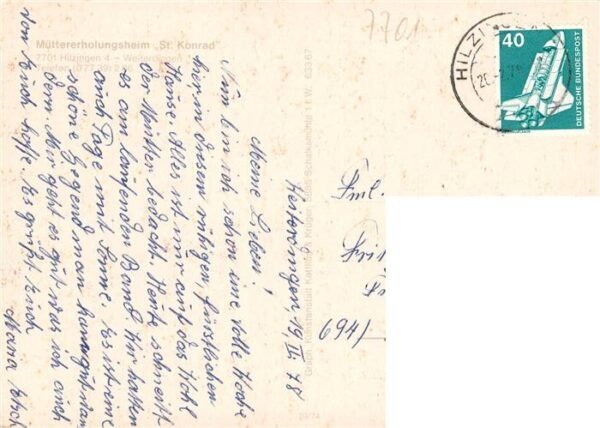 Müttererholungsheim „St. Konrad"
7701 Hilzingen 4 – Weiterdingen
Telefon (0 77 39) 2
7701
HILZINGEN
40
DEUTSCHE BUNDESPOST
Weiterdingen, 19. IV. 78
Meine Lieben!
Nun bin ich schon eine volle Woche
hier in diesem ruhigen, fürstlichen
Hause. Alles ist nur auf das Wohl
der Mütter bedacht. Heute schneit
es am laufenden Band. Wir hatten
auch Tage mit Sonne. Es ist eine
schöne Gegend man kann gut wan
dern. Mir geht es gut was ich auch
von Euch hoffe. Es grüßt Euch
Maria
Fml.
694/
Graph. Kunstanstalt